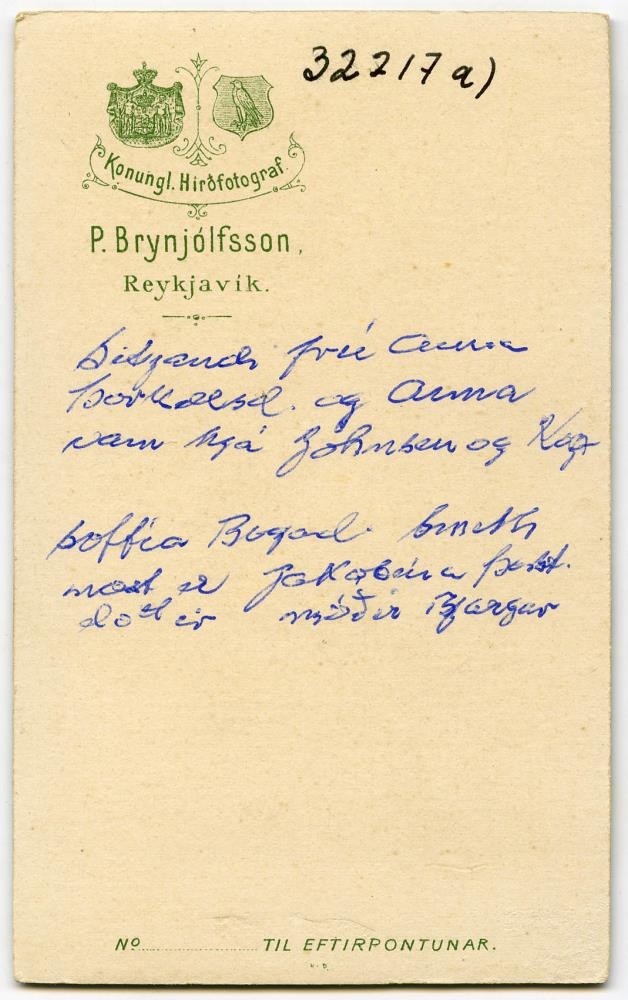 32217 a)
Konungl. Hirðfotograf.
P. Brynjólfsson,
Reykjavík.
Sitjandi frú Anna
Þorkelsd. og Anna
vann hjá Johnsen og Kaa
Soffía Bogad. Smith
næst er Jakobína Þorst.
dottir móðir Bjargar
No TIL EFTIRPONTUNAR.